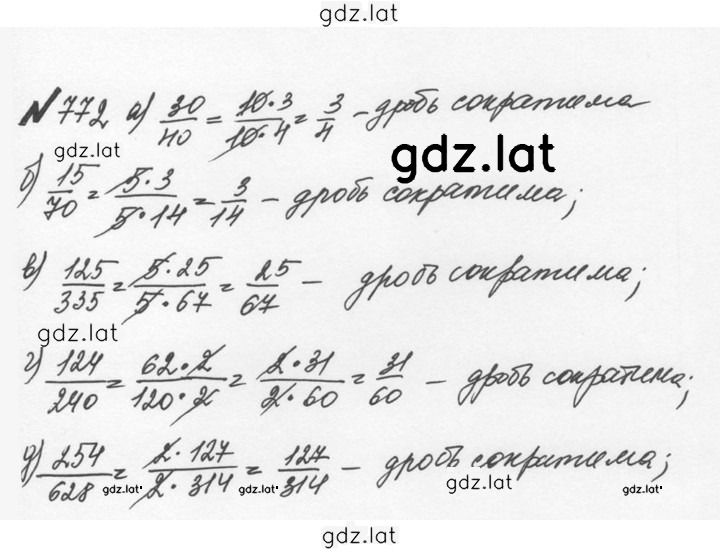 gdz.lat
№772 а) 30/40 = 10·3/10·4 = 3/4 - дробь сократима
gdz.lat
gdz.lat
б) 15/70 = 5·3/5·14 = 3/14 - дробь сократима;
в) 125/335 = 5·25/5·67 = 25/67 - дробь сократима;
gdz.lat
г) 124/240 = 62·2/120·2 = 2·31/2·60 = 31/60 - дробь сократима;
д) 254/628 = 2·127/2·314 = 127/314 - дробь сократима;
gdz.lat gdz.lat gdz.lat gdz.lat
gdz.lat